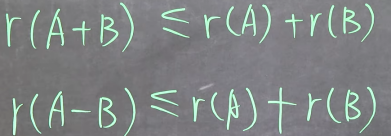 r(A+B) ≤ r(A)+r(B)
r(A-B) ≤ r(A)+r(B)